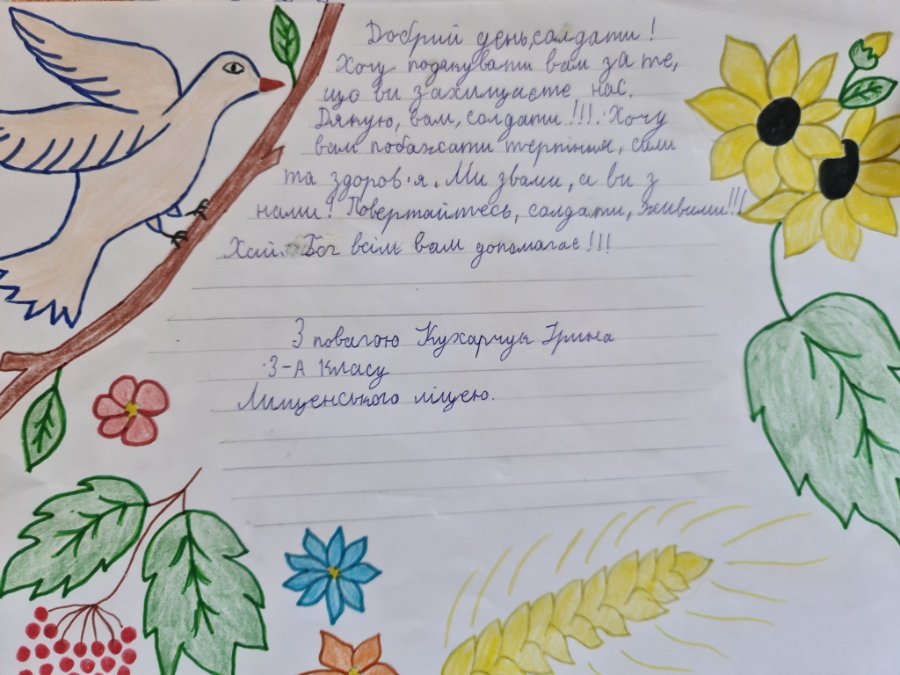 Добрий день, солдати!
Хочу подякувати вам за те,
що ви захищаєте нас.
Дякую, вам, солдати!!!. Хочу
вам побажати терпіння, сили
та здоров'я. Ми з вами, а ви з
нами! Повертайтесь, солдати, живими!!!
Хай Бог всім вам допомагає!!!
З повагою Кухарчук Ірина
3-А класу
Лищенського ліцею.